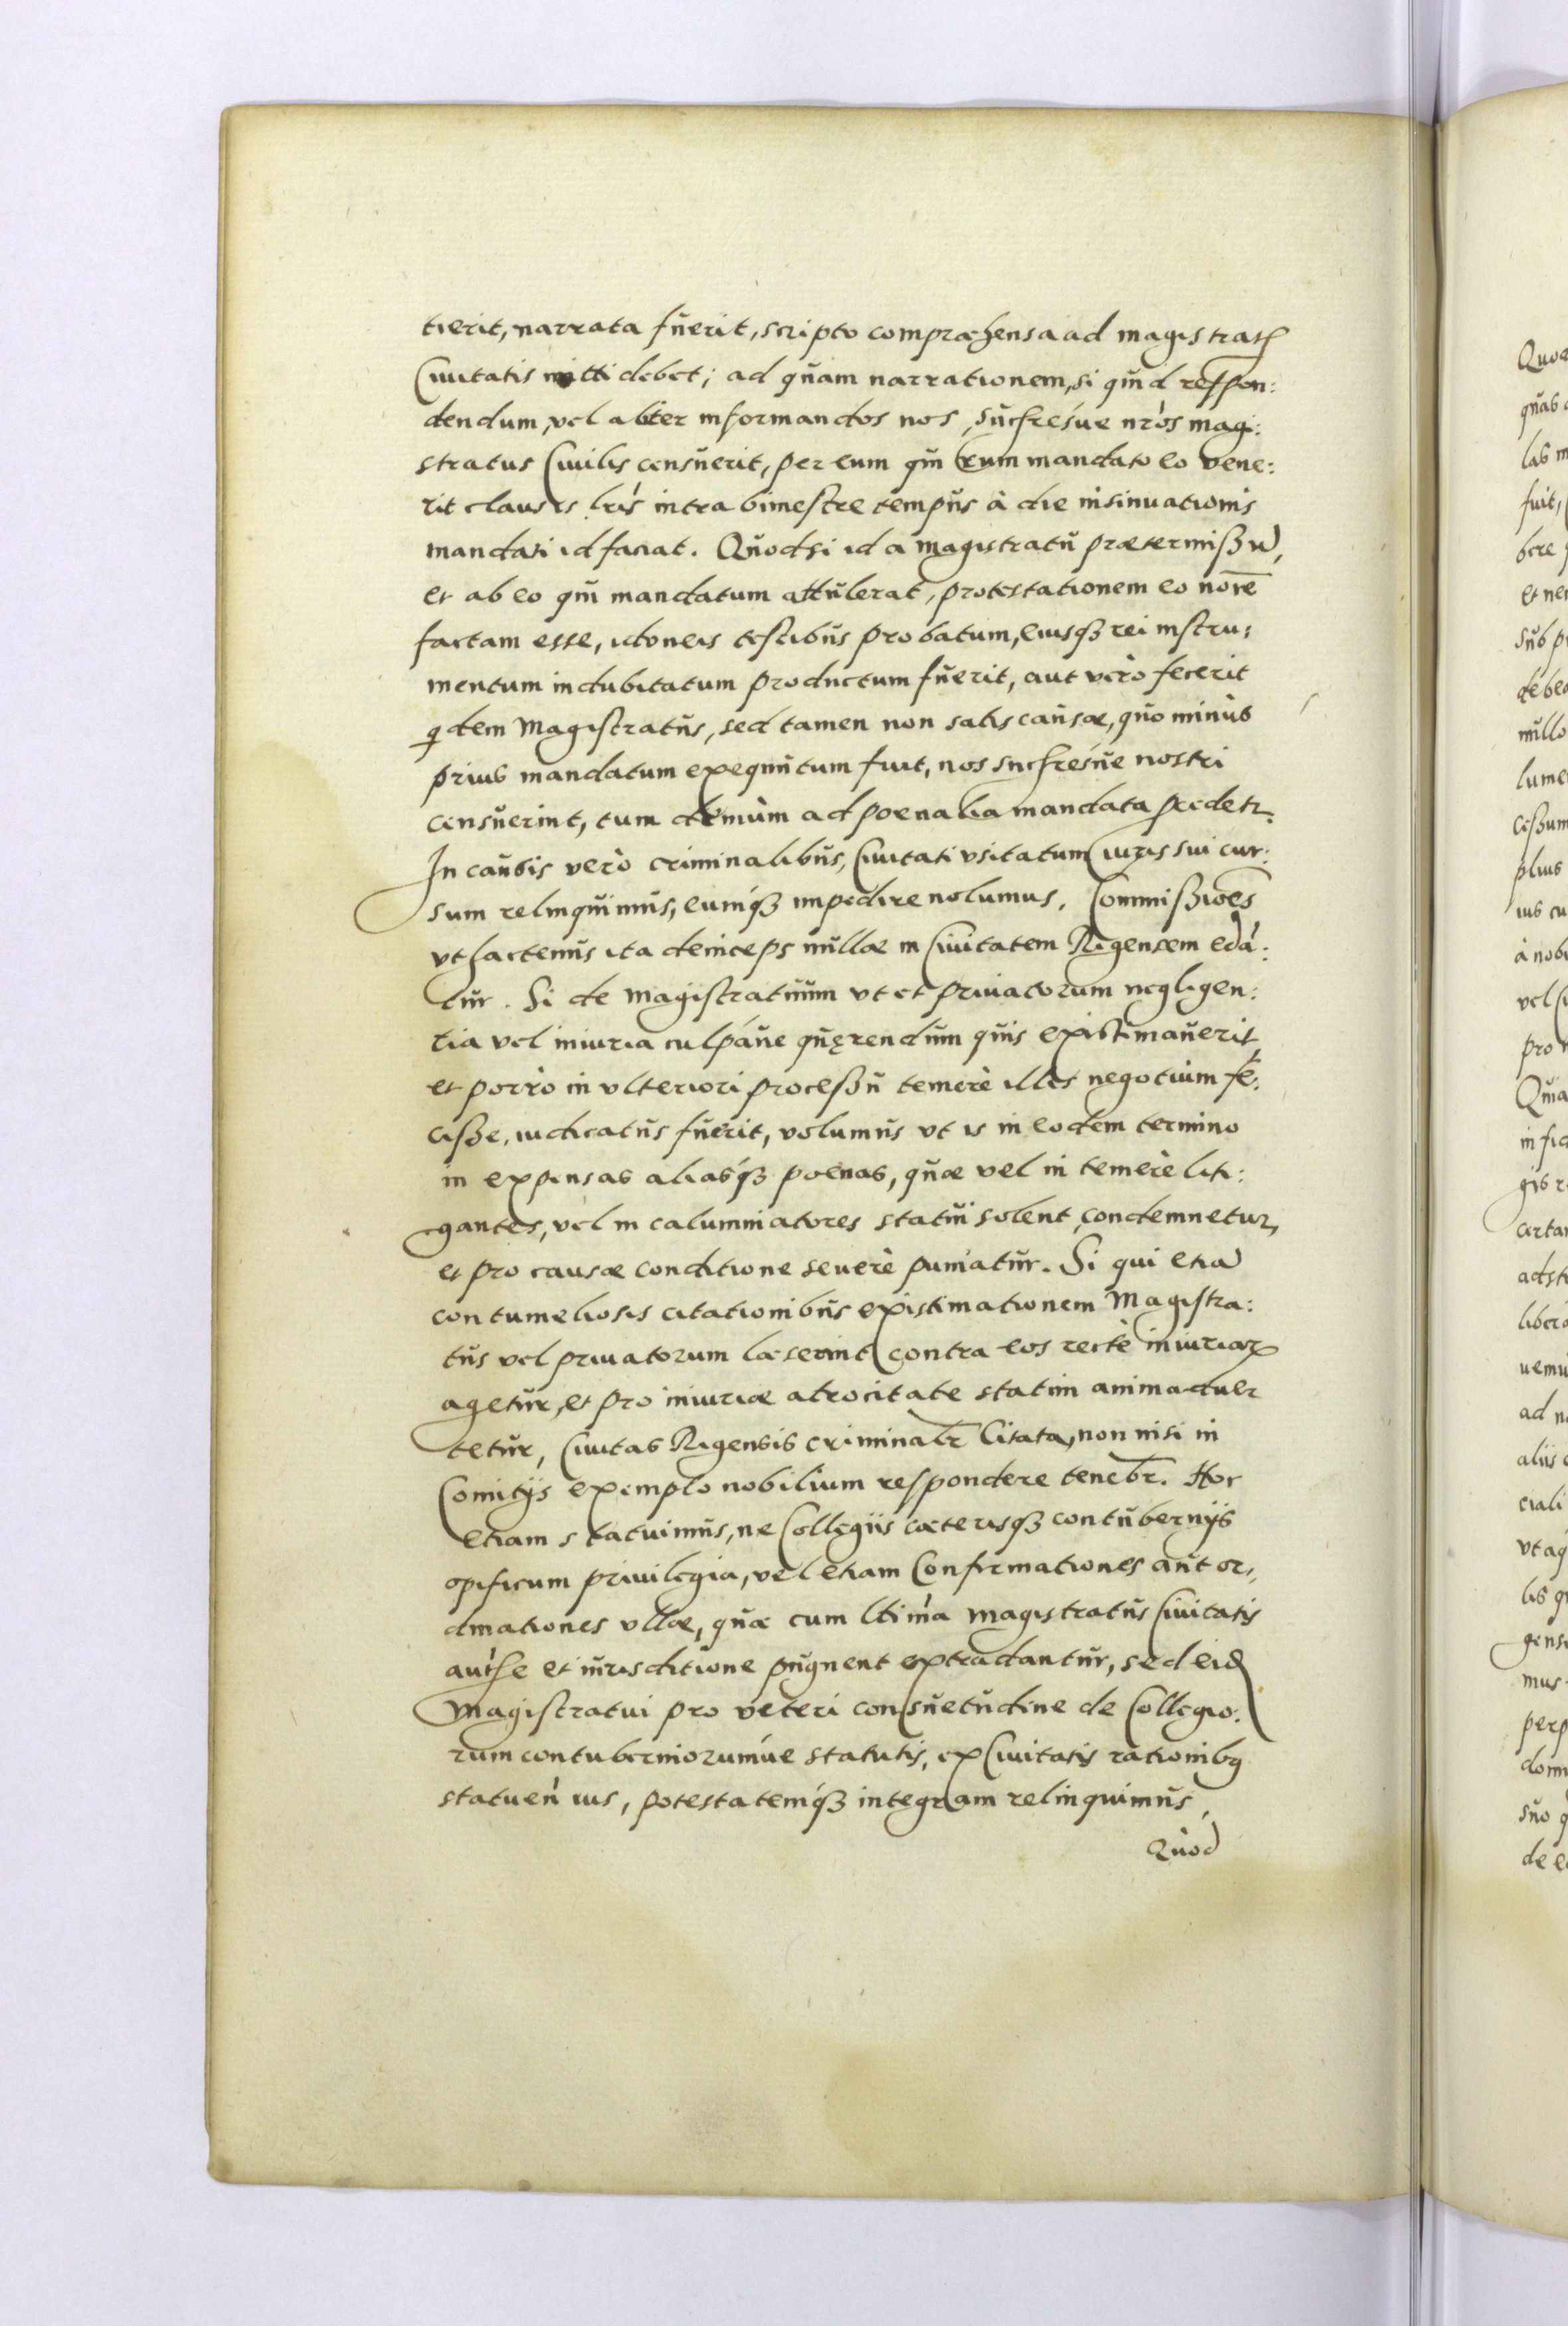 tierit, narrata fuerit, scripto compraehensa ad magistratū
Ciuitatis mitti debet; ad quam narrationem, si quid respon:
dendum, vel aliter informandos nos, succresúe nr̃os magi:
stratus Ciuilis censuerit, per eum qui cum mandato eo vene:
rit clausis lr̃is intra bimestre tempus à die insinuationis
mandati id faciat. Quodsi id a magistratu praetermissū,
et ab eo qui mandatum attulerat, protestationem eo nõre
factam esse, idoneis testibus probatum, eiusq3 rei instru:
mentum indubitatum productum fuerit, aut verò fecerit
qdem Magistratus, sed tamen non satis causae, quo minùs
prius mandatum exequutum fuit, nos succresúe nostri
censuerint, tum demùm ad poenalia mandata procedetr.
In causis verò criminalibus, Ciuitati vsitatum iuris sui cur:
sum relinquimus, eumq́3 impedire nolumus. Commissiões
vt hactenus ita deinceps nullae in Ciuitatem Rigensem edã:
tur. Si de magistratuum vt et priuatorum negligen:
tia vel iniuria culpáue quęrendum quis existimauerit
et porrò in vlteriori processu temerè illis negotium fe:
cisse, iudicatus fuerit, volumus vt is in eodem termino
in expensas aliasq́3 poenas, quae vel in temerè liti:
gantes, vel in calumniatores statui solent, condemnetur,
et pro causae conditione seuerè puniatur. Si qui etiā
contumeliosis citationibus existimationem Magistra:
tus vel priuatorum laeserint contra eos rectè iniuriarū
agetur, et pro iniuriae atrocitate statim animaduer
tetur, Ciuitas Rigensis criminalr̃ Citata, non nisi in
Comitijs exemplo nobilium respondere tenebr̃. Hoc
etiam statuimus, ne Collegiis caeterisq3 contubernijs
opificum priuilegia, vel etiam Confirmationes aut or,
dinationes vllae, quae cum ltima magistratus Ciuitatis
autħe et iurisditione pugnent extradantur, sed eidē
Magistratui pro veteri consuetudine de Collegio:
rum contuberniorumúe statutis, ex Ciuitatis rationibq
statuen̄ ius, potestatemq́3 integram relinquimus,
Quod